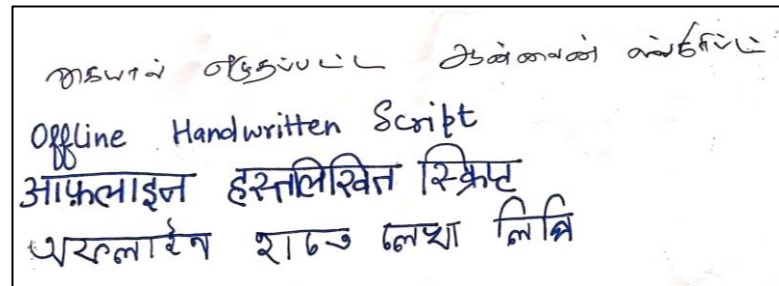 கையால் எழுதப்பட்ட ஆன்லைன் ஸ்கிரிப்ட்
Offline Handwritten Script
आफ़लाइन हस्तलिखित स्क्रिप्ट
অফলাইন হাতে লেখা লিপি